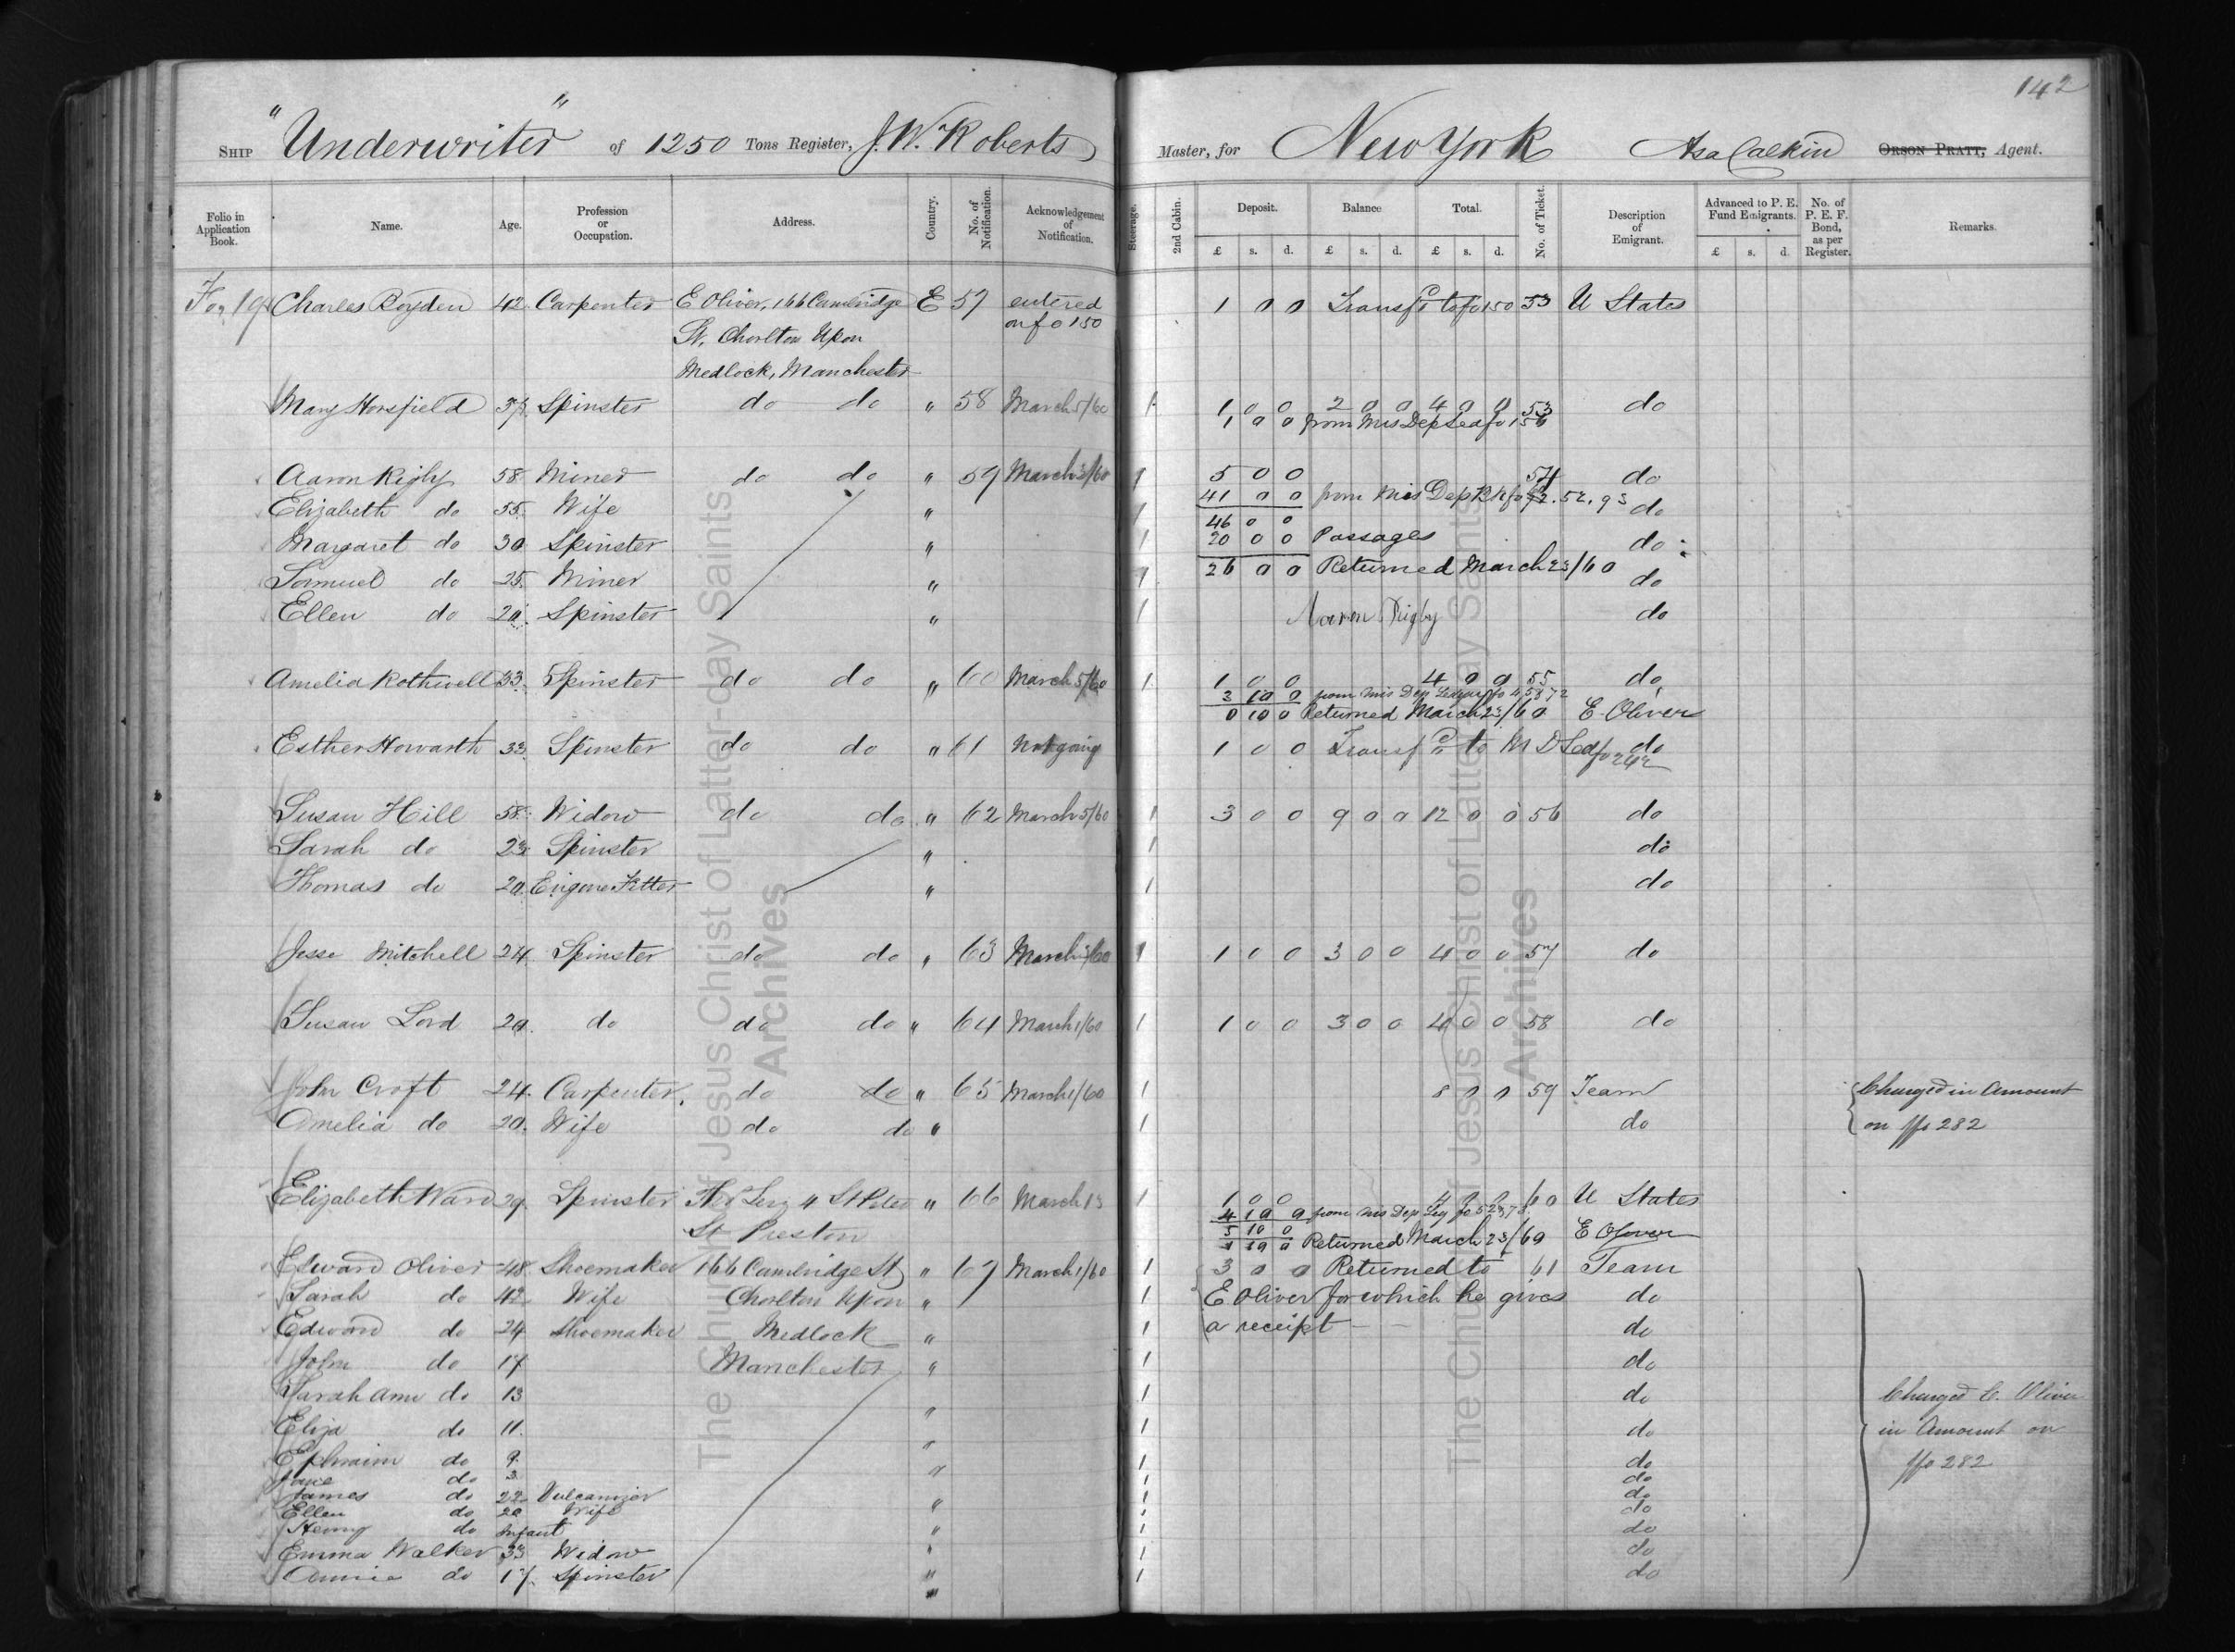 142
SHIP "Underwriter" of 1250 Tons Register, J. W. Roberts Master, for New York Asa Calkin ORSON PRATT, Agent.
Folio in Application Book. Name. Age. Profession or Occupation. Address. Country. No. of Notification. Acknowledgement of Notification. Steerage. 2nd Cabin. Deposit. Balance Total. No. of Ticket. Description of Emigrant. Advanced to P. E. Fund Emigrants. No. of P. E. F. Bond, as per Register. Remarks.
£ s. d. £ s. d. £ s. d. £ s. d.
Charles Royden 42 Carpenter E Oliver, 166 Cambridge E 57 entered 1 0 0 Transfd to fo 150 53 U States
on fo 150
St, Chorlton Upon
Medlock, Manchester
Mary Horsfield Spinster do do " 58 March 5/60 1 1 0 0 2 0 0 4 0 0 53 do
1 0 0 from Mis Dep Led fo 156
Aaron Rigby 58 Miner do do " 59 March 1 5 0 0 54 do
41 0 0 from Mis Dep
Elizabeth do 55 Wife " 1 do
46 0 0
Margaret do 30 Spinster " 1 20 0 0 Passages do
Samuel do 25 Miner " 1 26 0 0 Returned March 23/60 do
Ellen do 20 Spinster " 1 Aaron Rigby do
Amelia Rothwell 33 Spinster do do " 60 March 5/60 1 1 0 0 4 0 0 55 do
3 10 0 from Mis Dep Ledger fo
0 10 0 Returned March 23/60 E Oliver
Esther Howarth 33 Spinster do do " 61 Not going 1 0 0 Transfd to M D Led fo 242 do
Susan Hill 58 Widow do do " 62 March 5/60 1 3 0 0 9 0 0 12 0 0 56 do
Sarah do 23 Spinster " 1 do
Thomas do 20 Engine Fitter " 1 do
Jesse Mitchell 24 Spinster do do " 63 March 1 1 0 0 3 0 0 4 0 0 57 do
Susan Lord 20 do do do " 64 March 1/60 1 1 0 0 3 0 0 4 0 0 58 do
John Croft 24 Carpenter do do " 65 March 1/60 1 8 0 0 59 Team Charged in Amount
Amelia do 20 Wife do do " 1 do on fo 282
Elizabeth Ward 29 Spinster 4 St " 66 March 13 1 1 0 0 4 0 0 60 U States
St Preston 4 10 0 from Mis Dep Leg fo
5 10 0
1 10 0 Returned March 23/60 E Oliver
Edward Oliver 48 Shoemaker 166 Cambridge St " 67 March 1/60 1 3 0 0 Returned to 61 Team
Sarah do 42 Wife Chorlton Upon " 1 E Oliver for which he gives do
Edward do 24 Shoemaker Medlock " 1 a receipt do
John do 17 Manchester " 1 do
Sarah Ann do 13 " 1 do Charged E. Oliver
Eliza do 11 " 1 do in Amount on
Ephraim do 9 " 1 do fo 282
Jane do 3 1 do
James do 22 Vulcanizer " 1 do
Ellen do 20 Wife 1 do
Henry do Infant " 1 do
Emma Walker 33 Widow " 1 do
Annie do 17 Spinster " 1 do
The Church of Jesus Christ of Latter-day Saints
Archives
The Church of Jesus Christ of Latter-day Saints
Archives